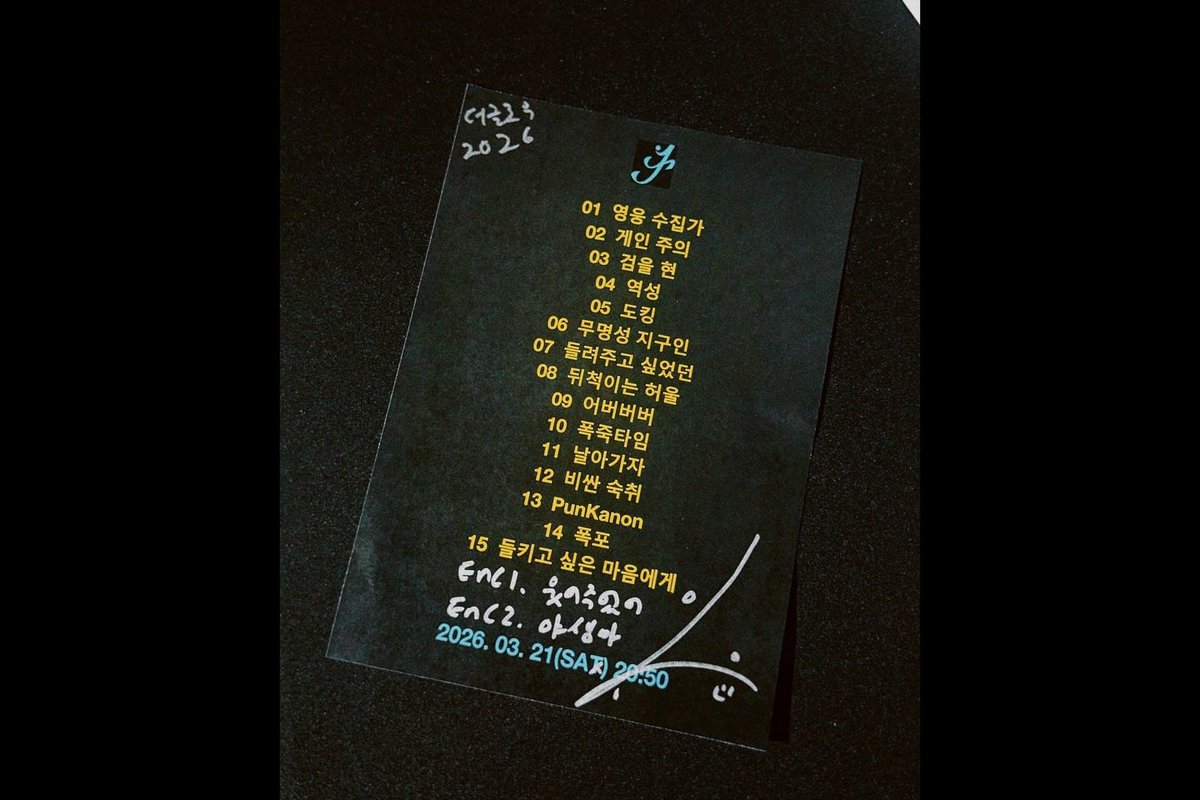 더글로우
2026
01 영웅 수집가
02 게인 주의
03 검을 현
04 역성
05 도킹
06 무명성 지구인
07 들려주고 싶었던
08 뒤척이는 허울
09 어버버버
10 폭죽타임
11 날아가자
12 비싼 숙취
13 PunKanon
14 폭포
15 들키고 싶은 마음에게
Enc1. 웃어주었어
Enc2. 야생마
2026. 03. 21(SAT) 20:50